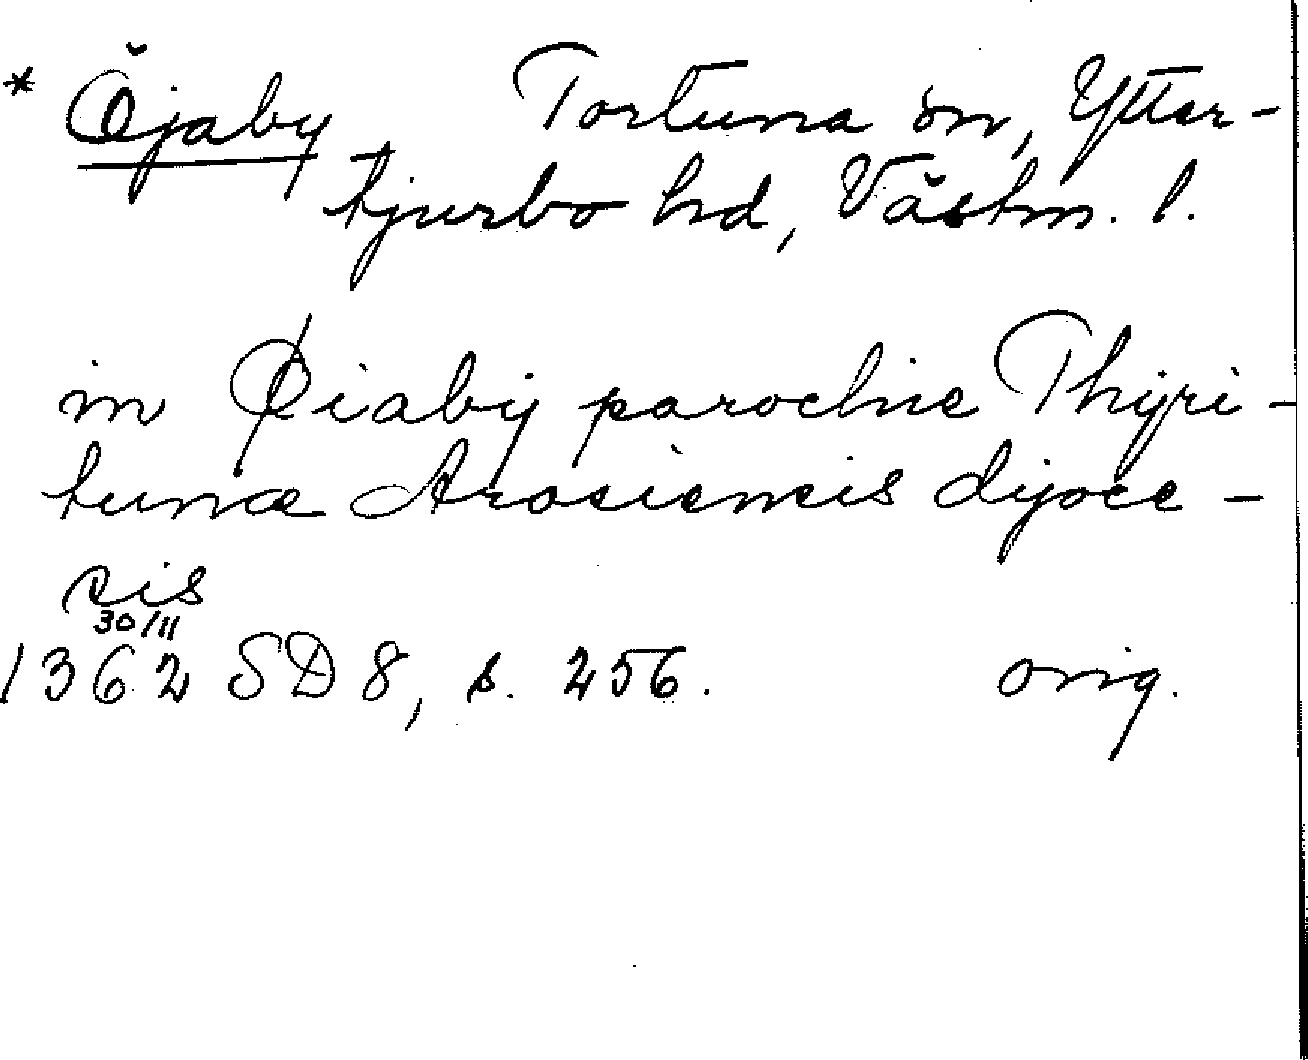 * Öjaby Tortuna sn, Ytter-
tjurbo hd, Västm. l.
in Øiaby parochie Thyri-
tunæ Arosiensis dyoce-
sis
30/11
1362 SD 8, s. 256. orig.